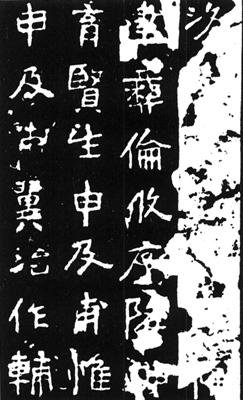 彝倫攸序降神
育賢生申及甫惟
申及甫翼治作輔